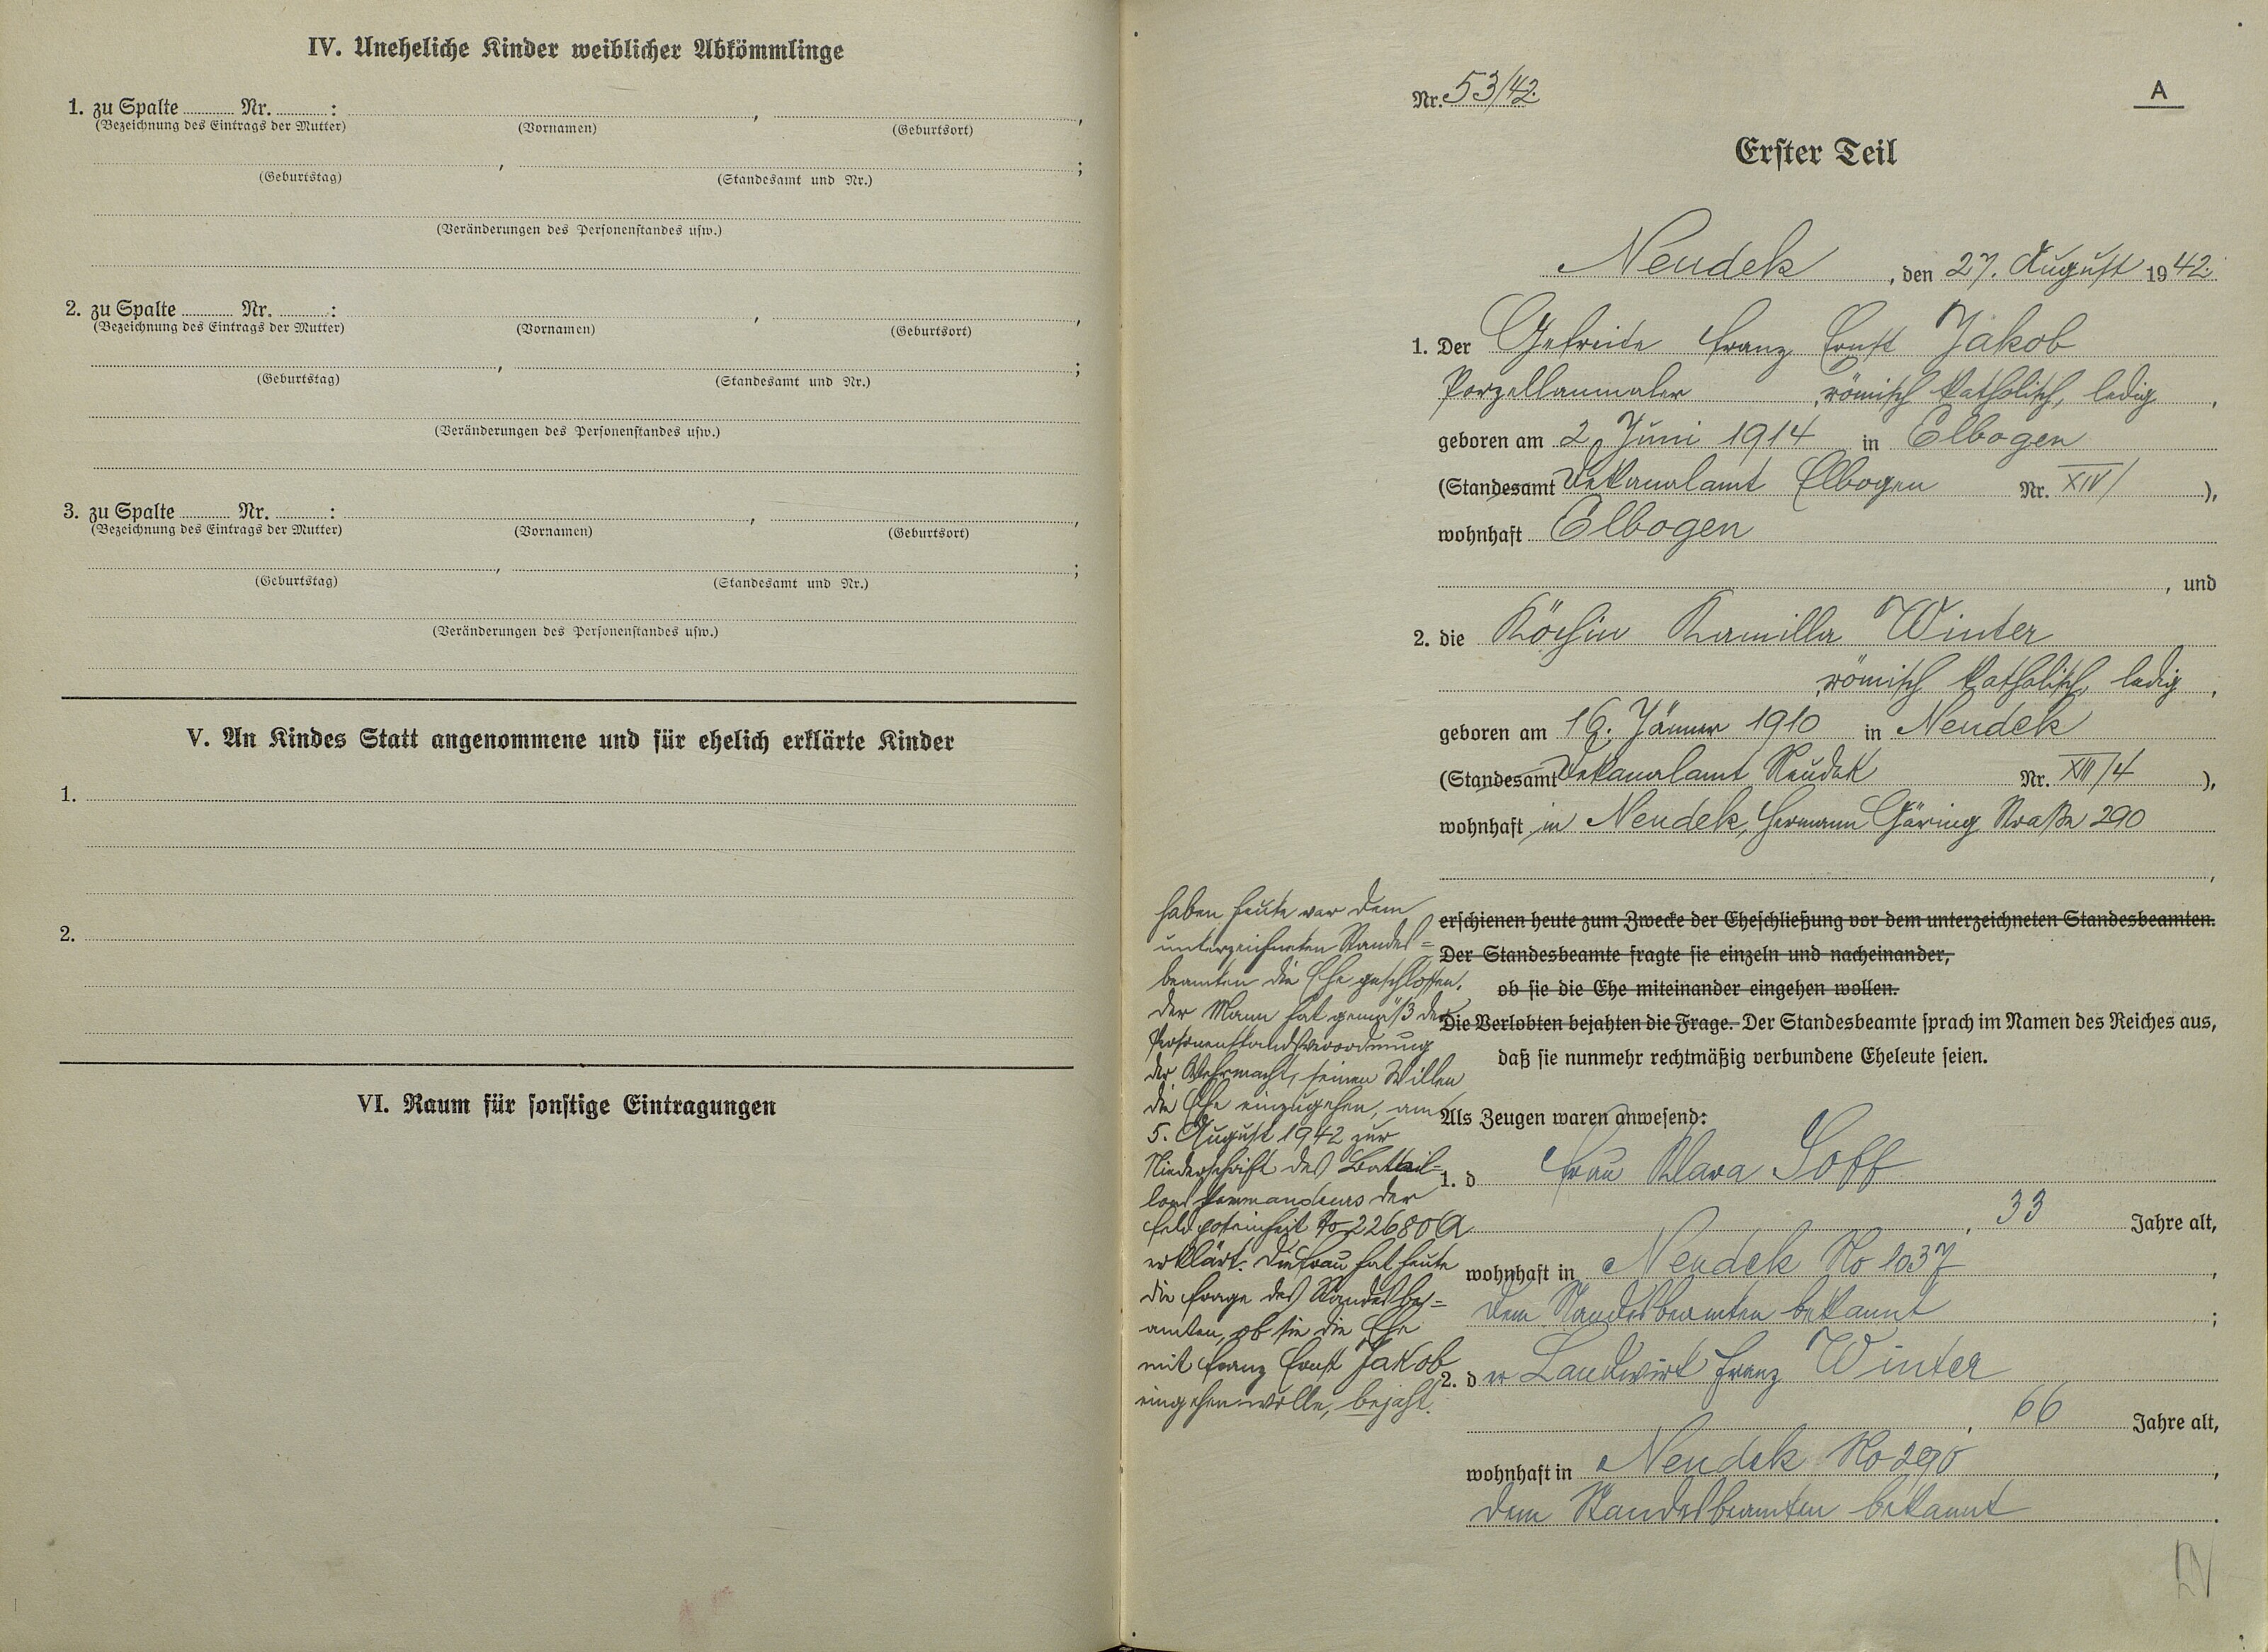 IV. Uneheliche Kinder weiblicher Abkömmlinge
1. zu Spalte ........ Nr. ........ :
(Bezeichnung des Eintrags der Mutter) (Vornamen) , (Geburtsort) ,
(Geburtstag) , (Standesamt und Nr.) ;
(Veränderungen des Personenstandes usw.)
2. zu Spalte ........ Nr. ........ :
(Bezeichnung des Eintrags der Mutter) (Vornamen) , (Geburtsort) ,
(Geburtstag) , (Standesamt und Nr.) ;
(Veränderungen des Personenstandes usw.)
3. zu Spalte ........ Nr. ........ :
(Bezeichnung des Eintrags der Mutter) (Vornamen) , (Geburtsort) ,
(Geburtstag) , (Standesamt und Nr.) ;
(Veränderungen des Personenstandes usw.)
V. An Kindes Statt angenommene und für ehelich erklärte Kinder
1.
2.
VI. Raum für sonstige Eintragungen
Nr. 53/42.
A
Erster Teil
Neudek, den 27. August 1942.
1. Der Gefreite Franz Ernst Jakob
Porzellanmaler, römisch katholisch, ledig,
geboren am 2. Juni 1914 in Elbogen
(Standesamt Dekanalamt Elbogen Nr. XIV/ ),
wohnhaft Elbogen
, und
2. die Köchin Kamilla Winter
, römisch katholisch, ledig,
geboren am 16. Jänner 1910 in Neudek
(Standesamt Dekanalamt Neudek Nr. XII/4 ),
wohnhaft in Neudek, Hermann Göring Straße 290
,
erschienen heute zum Zwecke der Eheschließung vor dem unterzeichneten Standesbeamten.
Der Standesbeamte fragte sie einzeln und nacheinander,
ob sie die Ehe miteinander eingehen wollen.
Die Verlobten bejahten die Frage. Der Standesbeamte sprach im Namen des Reiches aus,
daß sie nunmehr rechtmäßig verbundene Eheleute seien.
haben heute vor dem
unterzeichneten Standes=
beamten die Ehe geschlossen.
Der Mann hat gemäß der
Personenstandsverordnung
der Wehrmacht, seinen Willen
die Ehe einzugehen, am
5. August 1942 zur
Niederschrift des Batail=
lons Kommandeurs der
Feldposteinheit No 22680 A
erklärt. Die Frau hat heute
die Frage des Standesbe=
amten, ob sie die Ehe
mit Franz Ernst Jakob
eingehen wolle, bejaht.
Als Zeugen waren anwesend:
1. d Frau Klara
, 33 Jahre alt,
wohnhaft in Neudek No 1037,
dem Standesbeamten bekannt ;
2. der Landwirt Franz Winter
, 66 Jahre alt,
wohnhaft in Neudek No 290,
dem Standesbeamten bekannt .